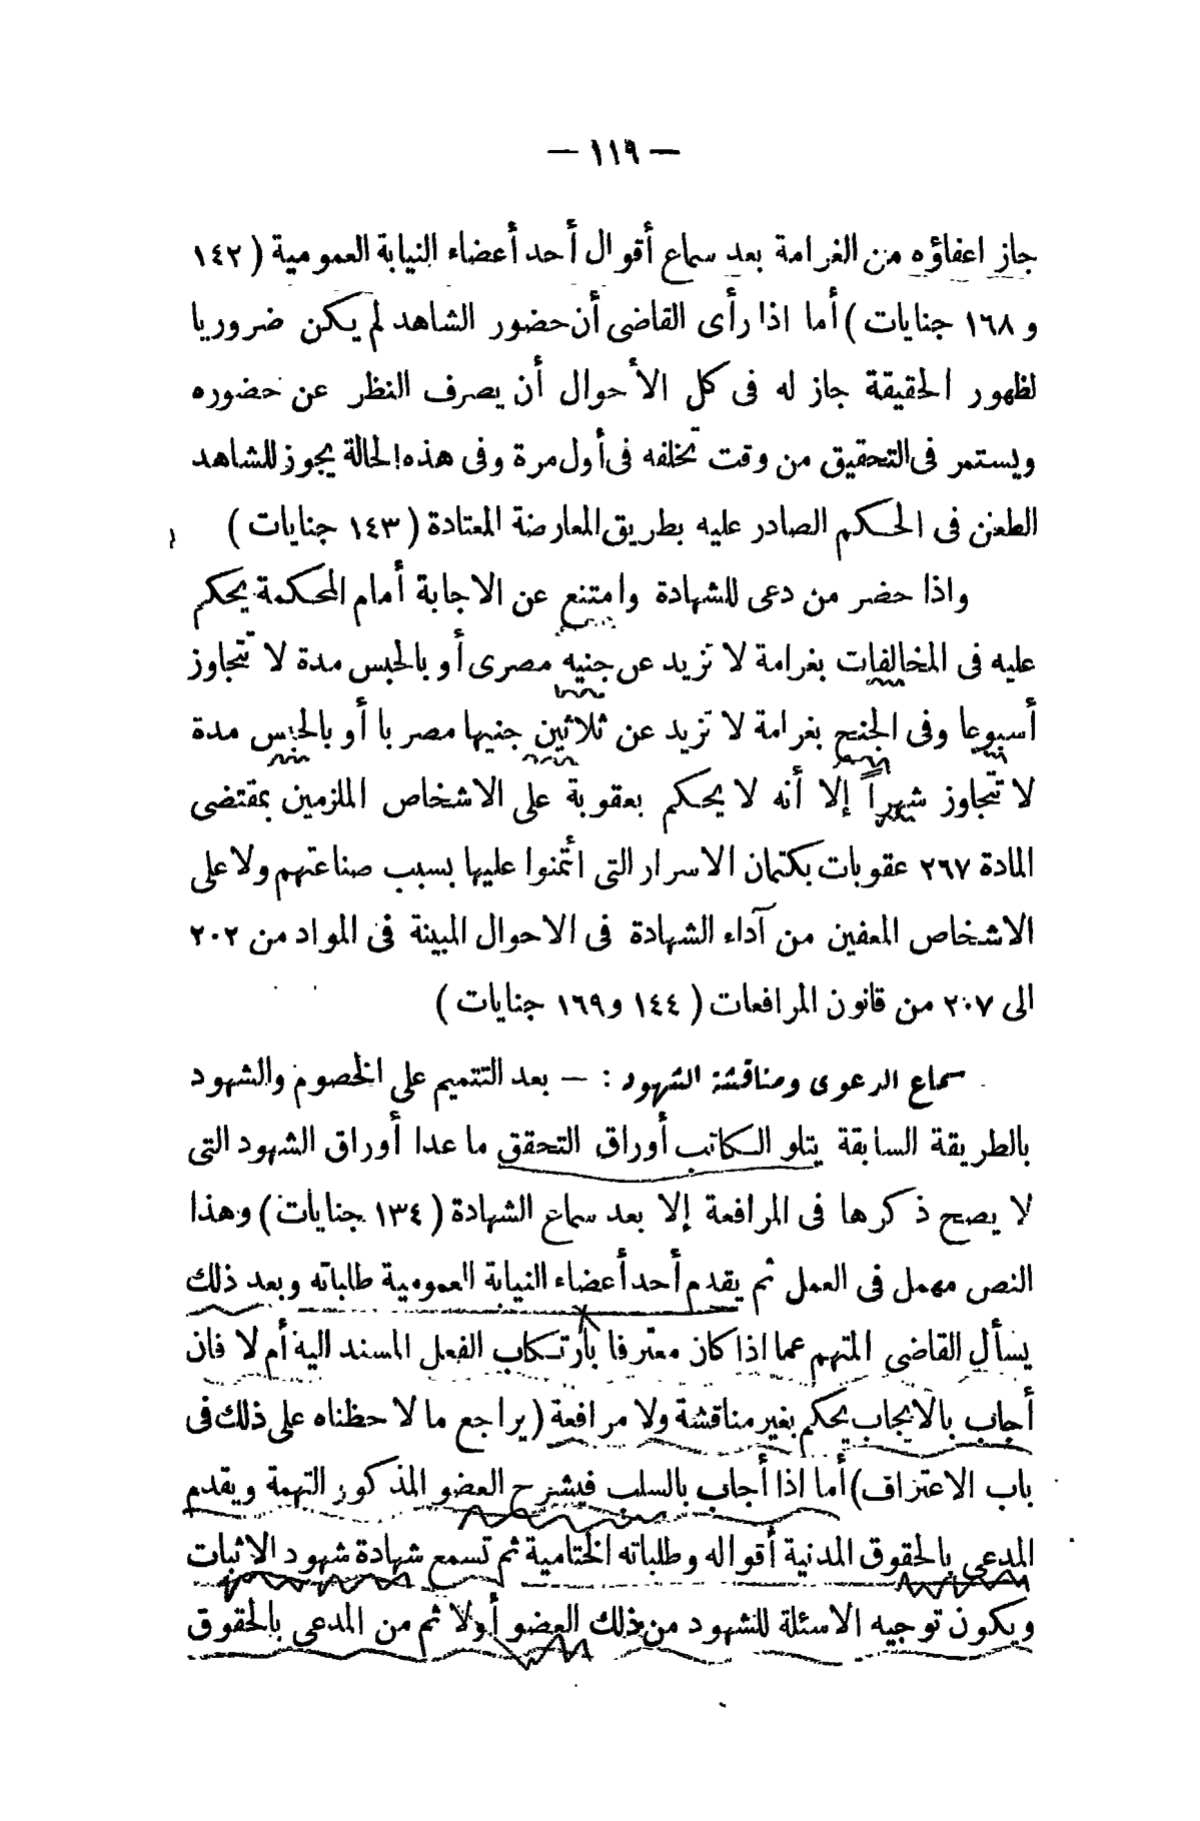 — ١١٩ —
جاز اعفاؤه من الغرامة بعد سماع أقوال أحد أعضاء النيابة العمومية ( ١٤٢
و ١٦٨ جنايات ) أما اذا رأى القاضى أن حضور الشاهد لم يكن ضروريا
لظهور الحقيقة جاز له فى كل الأحوال أن يصرف النظر عن حضوره
ويستمر فى التحقيق من وقت تخلفه فى أول مرة وفى هذه الحالة يجوز للشاهد
الطعن فى الحكم الصادر عليه بطريق المعارضة المعتادة ( ١٤٣ جنايات )
واذا حضر من دعى للشهادة وامتنع عن الاجابة أمام المحكمة يحكم
عليه فى المخالفات بغرامة لا تزيد عن جنيه مصرى أو بالحبس مدة لا تتجاوز
أسبوعا وفى الجنح بغرامة لا تزيد عن ثلاثين جنيها مصر با أو بالحبس مدة
لا تتجاوز شهراً إلا أنه لا يحكم بعقوبة على الاشخاص الملزمين بمقتضى
المادة ٢٦٧ عقوبات بكتمان الاسرار التى ائتمنوا عليها بسبب صناعتهم ولا على
الاشخاص المعفين من آداء الشهادة فى الاحوال المبينة فى المواد من ٢٠٢
الى ٢٠٧ من قانون المرافعات ( ١٤٤ و ١٦٩ جنايات )
سماع الدعوى ومناقشة الشهود : — بعد التتميم على الخصوم والشهود
بالطريقة السابقة يتلو الكاتب أوراق التحقق ما عدا أوراق الشهود التى
لا يصح ذكرها فى المرافعة إلا بعد سماع الشهادة ( ١٣٤ جنايات ) وهذا
النص مهمل فى العمل ثم يقدم أحد أعضاء النيابة العمومية طلباته وبعد ذلك
يسأل القاضى المتهم عما اذا كان معترفا بارتكاب الفعل المسند اليه أم لا فان
أجاب بالايجاب يحكم بغير مناقشة ولا مرافعة ( يراجع ما لاحظناه على ذلك فى
باب الاعتراف ) أما اذا أجاب بالسلب فيشرح العضو المذكور التهمة ويقدم
المدعى بالحقوق المدنية أقواله وطلباته الختامية ثم تسمع شهادة شهود الاثبات
ويكون توجيه الاسئلة للشهود من ذلك العضو أولا ثم من المدعى بالحقوق